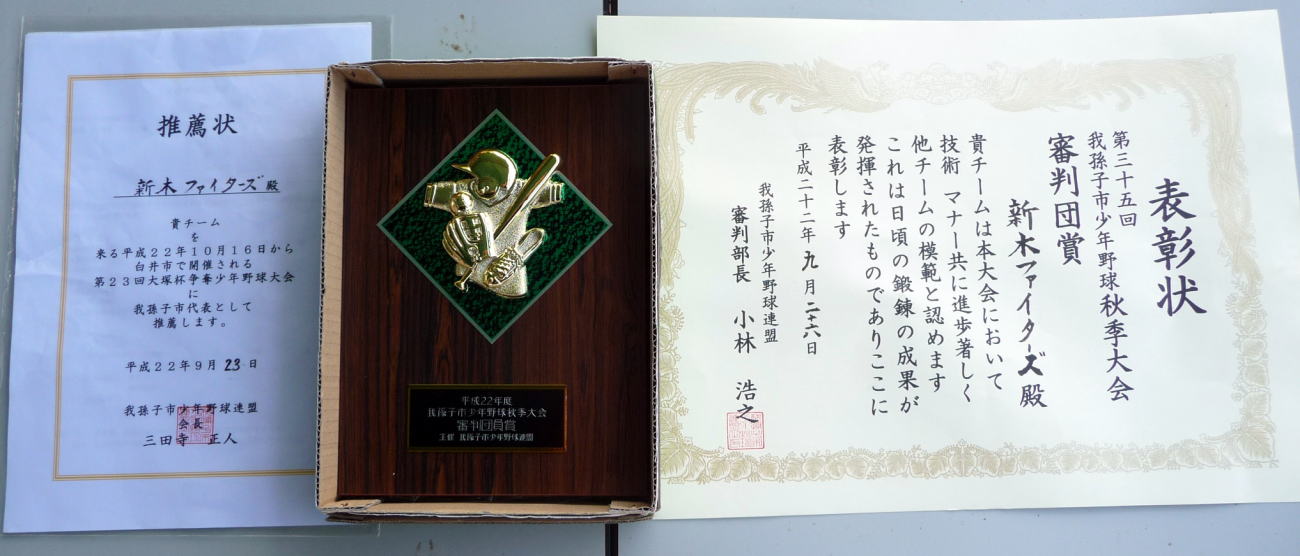 推薦状
新木ファイターズ殿
貴チーム
を
来る平成22年10月16日から
白井市で開催される
第23回大塚杯争奪少年野球大会
に
我孫子市代表として
推薦します。
平成22年9月23日
我孫子市少年野球連盟
会長
三田寺 正人
平成22年度
我孫子市少年野球秋季大会
審判団員賞
主催 我孫子市少年野球連盟
表彰状
第三十五回
我孫子市少年野球秋季大会
審判団賞
新木ファイターズ殿
貴チームは本大会において
技術 マナー共に進歩著しく
他チームの模範と認めます
これは日頃の鍛錬の成果が
発揮されたものでありここに
表彰します
平成二十二年九月二十六日
我孫子市少年野球連盟
審判部長 小林 浩之